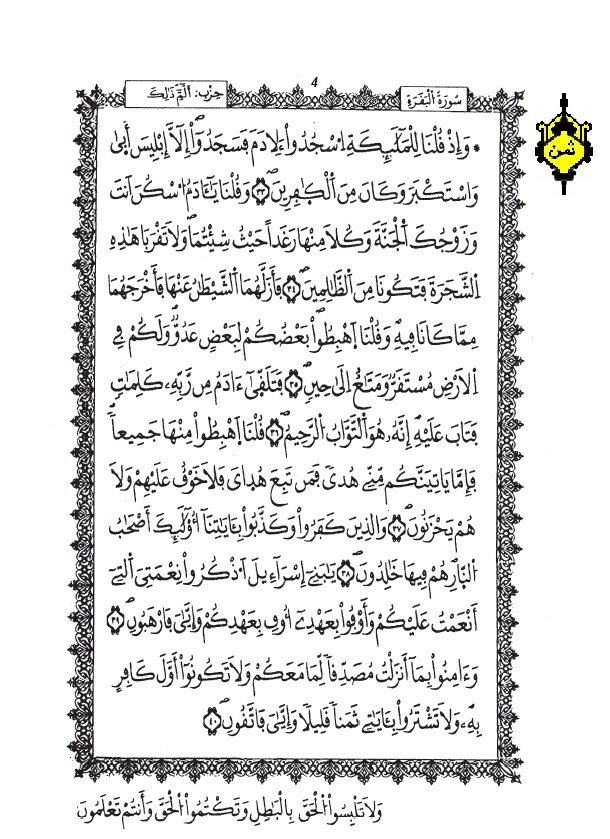 4
سُورَةُ الْبَقَرَةِ
حِزْب: الٓمِّٓ ذَٰلِكَ
ثمن
* وَإِذْ قُلْنَا لِلْمَلَٰٓئِكَةِ اِ۟سْجُدُواْ ءَلِادَمَ فَسَجَدُوٓاْ إِلَّآ إِبْلِيسَ أَبَىٰ
وَاسْتَكْبَرَ وَكَانَ مِنَ اَ۬لْكَٰفِرِينَۖ ٣٣ وَقُلْنَا يَٰٓـَٔادَمُ اُ۟سْكُنَ اَنتَ
وَزَوْجُكَ اَ۬لْجَنَّةَ وَكُلَا مِنْهَا رَغَداً حَيْثُ شِئْتُمَاۖ وَلَا تَقْرَبَا هَٰذِهِ
اِ۬لشَّجَرَةَ فَتَكُونَا مِنَ اَ۬لظَّٰلِمِينَۖ ٣٤ فَأَزَلَّهُمَا اَ۬لشَّيْطَٰنُ عَنْهَا فَأَخْرَجَهُمَا
مِمَّا كَانَا فِيهِۖ وَقُلْنَا اَ۪هْبِطُواْۖ بَعْضُكُمْ لِبَعْضٍ عَدُوّٞۖ وَلَكُمْ فِي
اِ۬لَارْضِ مُسْتَقَرّٞ وَمَتَٰعٌ اِلَىٰ حِينٖۖ ٣٥ فَتَلَقّ۪يٰٓ ءَادَمُ مِن رَّبِّهِۦ كَلِمَٰتٖ
فَتَابَ عَلَيْهِۖ إِنَّهُۥ هُوَ اَ۬لتَّوَّابُ اُ۬لرَّحِيمُۖ ٣٦ قُلْنَا اَ۪هْبِطُواْ مِنْهَا جَمِيعاٗۖ
فَإِمَّا يَاتِيَنَّكُم مِّنِّے هُدىٗ فَمَن تَبِعَ هُد۪ايَ فَلَا خَوْفٌ عَلَيْهِمْ وَلَا
هُمْ يَحْزَنُونَۖ ٣٧ وَالذِينَ كَفَرُواْ وَكَذَّبُواْ بِـَٔايَٰتِنَآ أُوْلَٰٓئِكَ أَصْحَٰبُ
اُ۬لنّ۪ارِ هُمْ فِيهَا خَٰلِدُونَۖ ٣٨ يَٰبَنِےٓ إِسْرَآءِيلَ اَ۟ذْكُرُواْ نِعْمَتِيَ اَ۬لتِےٓ
أَنْعَمْتُ عَلَيْكُمْ وَأَوْفُواْ بِعَهْدِےٓ أُوفِ بِعَهْدِكُمْ وَإِيَّٰيَ فَارْهَبُونِۖ ٣٩
وَءَامِنُواْ بِمَآ أَنزَلْتُ مُصَدِّقاٗ لِّمَا مَعَكُمْ وَلَا تَكُونُوٓاْ أَوَّلَ كَافِرِۢ
بِهِۦۖ وَلَا تَشْتَرُواْ بِـَٔايَٰتِے ثَمَناٗ قَلِيلاٗ وَإِيَّٰيَ فَاتَّقُونِۖ ٤٠
وَلَا تَلْبِسُواْ اُ۬لْحَقَّ بِالْبَٰطِلِ وَتَكْتُمُواْ اُ۬لْحَقَّ وَأَنتُمْ تَعْلَمُونَ